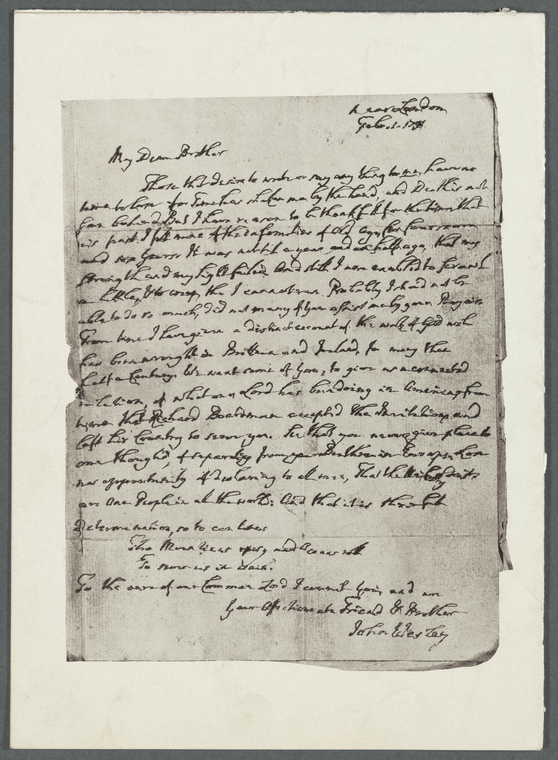 Near London
Feb. 1. 1791
My Dear Brother
Those that desire to write or say any thing to me, have no
time to lose for Time has shaken me by the hand and Death is not
far behind. But I have reason to be thankful for the time that
is past. I felt none of the infirmities of Old age for fourscore
and six years. It was not till a year and an half ago, that my
strength and my sight failed. And still I am enabled to scrawl
a little, & to creep, tho I cannot run. Probably I shoud not be
able to do so much, did not many of you assist me by your Prayers
I have given a distinct account of the work of God wch
has been wrought in Brittain and Ireland, for more than
half a Century. We want some of you, to give us a connected
relation, of what our Lord has been doing in America, from
time that Richard Boardman accepted the Invitation, and
left his Country to serve you. See that you never give place to
one thought, of separating from your Brethren in Europe. Lose
no opportunity of declaring to all men, That the Methodists
are One People in all the world: And that it is their full
determination, so to continue
Tho Mountains rise, and Oceans roll
To sever us in vain.
To the care of our Common Lord I commit you, and am
Your Affectionate Friend & Brother
John Wesley